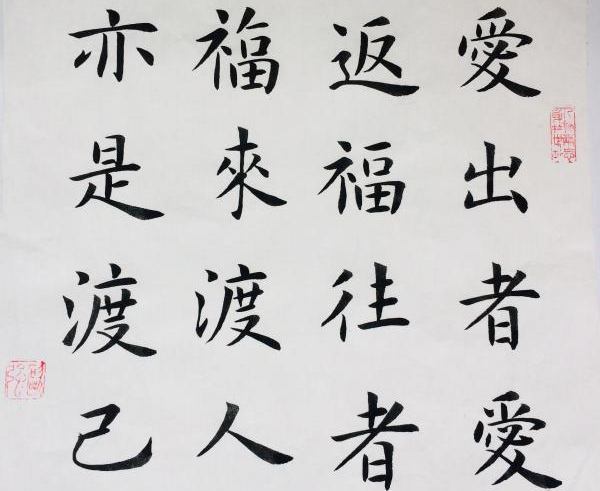 愛出者愛
返福往者
福來渡人
亦是渡己